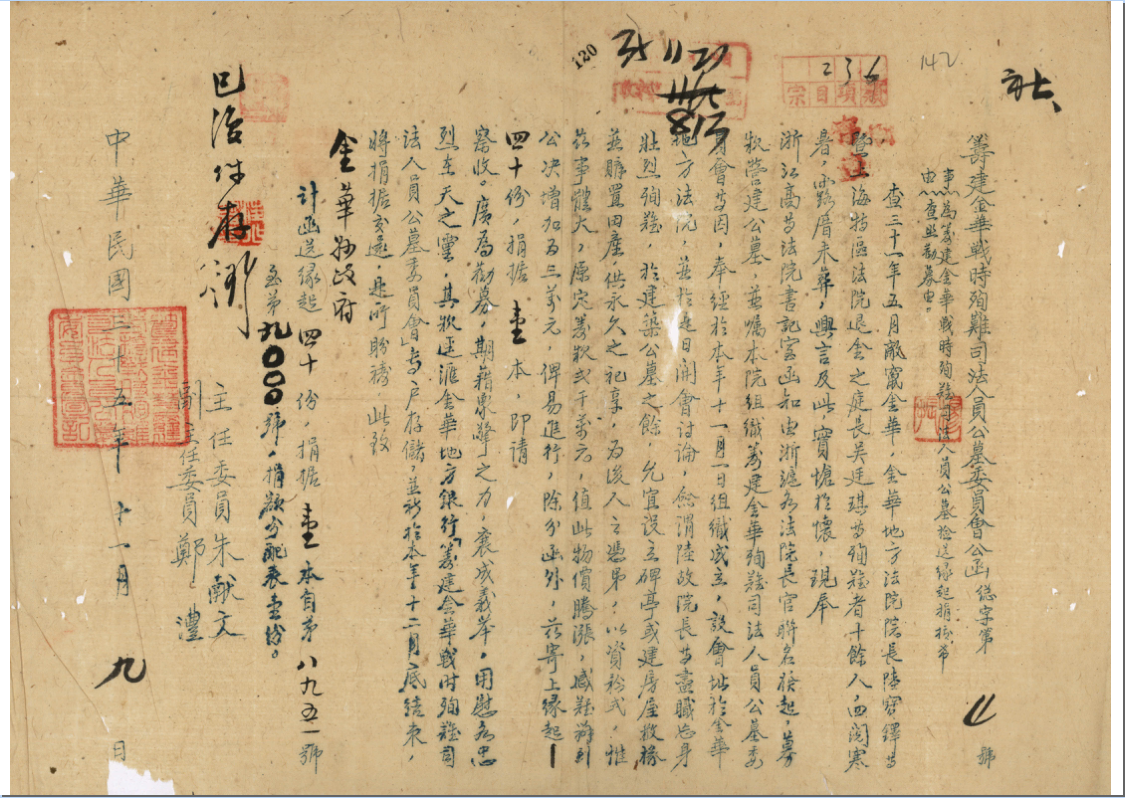 籌建金華戰時殉難司法人員公墓委員會公函 總字第 11 號
事由 為籌建金華戰時殉難司法人員公墓檢送緣起捐據希
查照勸募由。
查三十一年五月敵竄金華，金華地方法院院長陸寶鐸與
暨上海特區法院退金之庭長吳廷琪等殉難者十餘人，四閱寒
暑，露厝未葬，興言及此，實愴於懷，現奉
浙江高等法院書記官函知由浙滬各法院長官聯名發起，募
款營建公墓，並囑本院組織籌建金華殉難司法人員公墓委
員會等因，奉經於本年十一月一日組織成立，設會址於金華
地方法院，並於是日開會討論，僉謂陸故院長等盡職忘身
壯烈殉難，於建築公墓之餘，允宜設立碑亭或建房屋數椽
並購置田產，供永久之祀享，為後人之憑弔，以資矜式，惟
茲事體大，原定籌款貳千萬元，值此物價騰漲，感難辦到
公決增加為三萬元，俾易進行，除分函外，茲寄上緣起一
四十份，捐據 壹 本，即請
察收。廣為勸募，期藉眾擎之力，襄成義舉，用慰各忠
烈在天之靈，其款逕滙金華地方銀行「籌建金華戰時殉難司
法人員公墓委員會」專戶存儲，並祈於本年十二月底結束，
將捐據交還，是所盼禱，此致
金華縣政府
計函送緣起 四十 份，捐據 壹 本自第 八九五一 號
至第 九〇〇〇 號，捐款分配表壹份。
主任委員 朱獻文
副主任委員 鄭 澧
中華民國三十五年十一月 九 日
存
120
11 21
236
宗 目 項
142